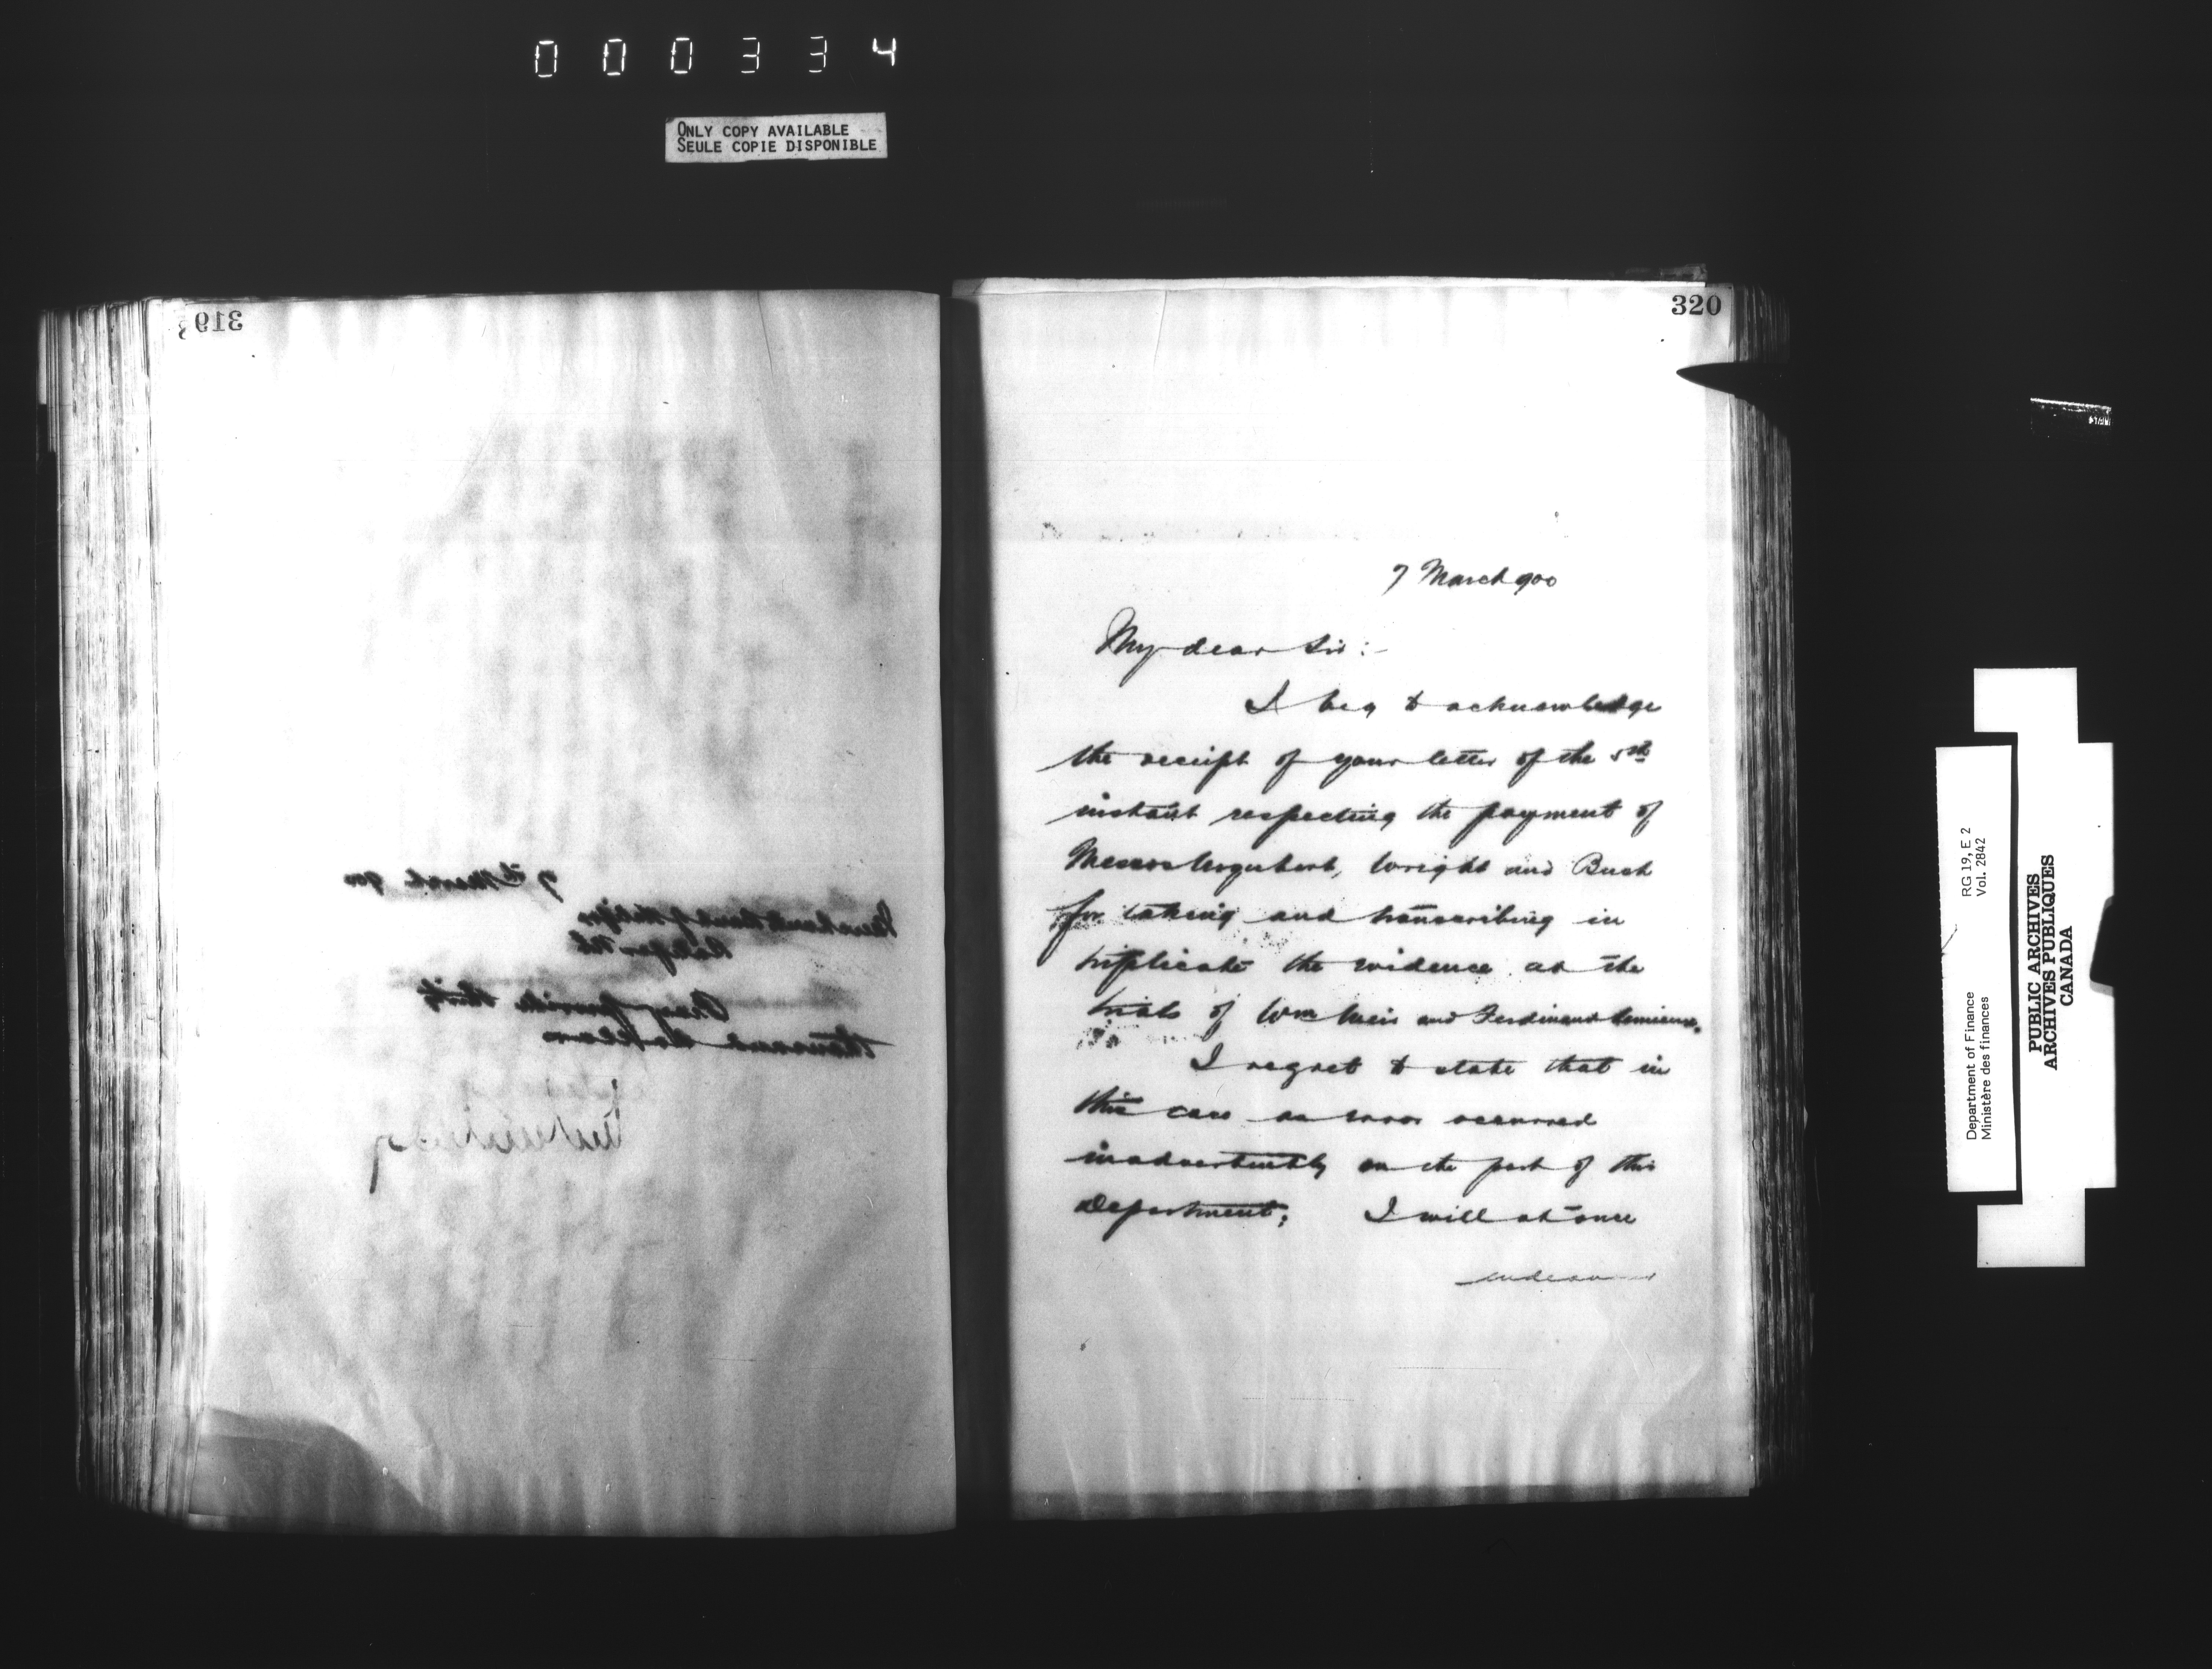 000334
ONLY COPY AVAILABLE
SEULE COPIE DISPONIBLE
319
7th March 900
Merchants Bank of Halifax
Halifax NS
Pray provide thirty
thousand dollars
320
7 March 900
My dear Sir:-
I beg to acknowledge
the receipt of your letter of the 5th
instant respecting the payment of
Messrs Urquhart, Wright and Bush
for taking and transcribing in
triplicate the evidence at the
trials of Wm Weir and Ferdinand Lemieux.
I regret to state that in
this case an error occurred
inadvertently on the part of this
Department; I will at once
endeavour
Department of Finance RG 19, E 2
Ministère des finances Vol. 2842
PUBLIC ARCHIVES
ARCHIVES PUBLIQUES
CANADA